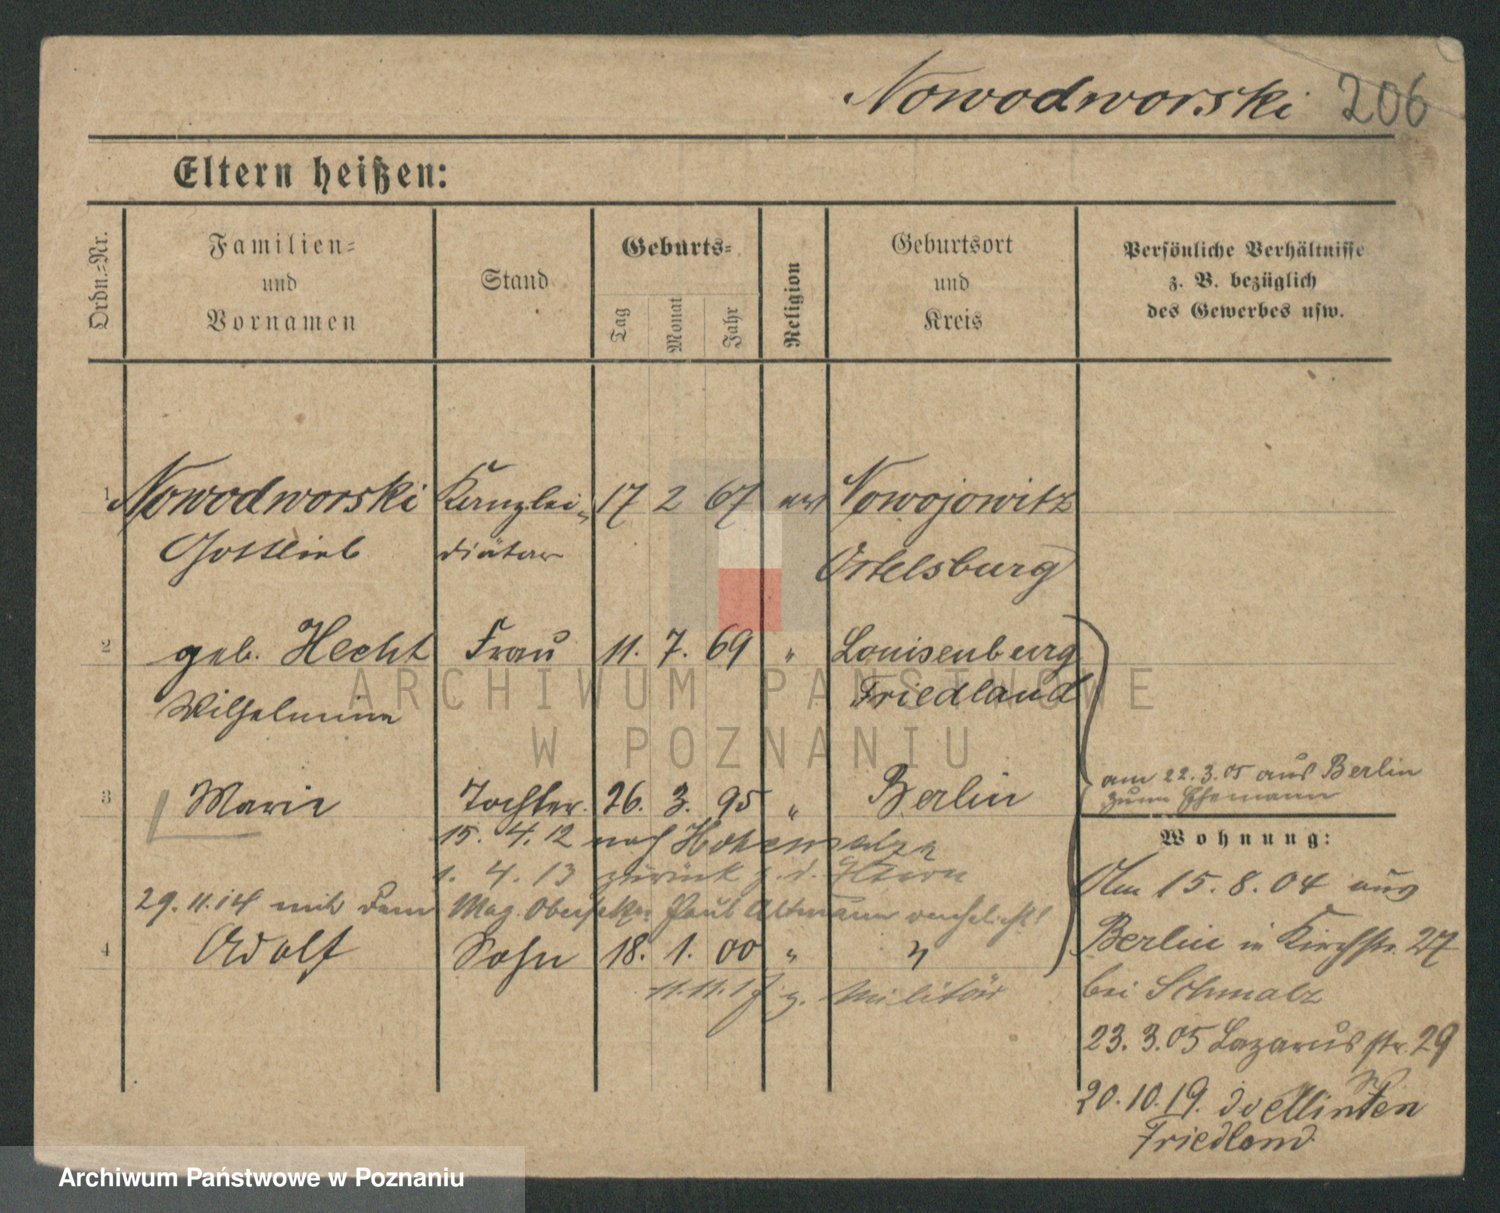 Nowodworski 206
Eltern heißen:
Ordn.-Nr.
Familien-
und
Vornamen
Stand
Geburts-
Tag
Monat
Jahr
Religion
Geburtsort
und
Kreis
Persönliche Verhältnisse
z. B. bezüglich
des Gewerbes usw.
1 Nowodworski Kanzlei- 17 2 67 Nowojowitz
Gottlieb diätar Ortelsburg
2 geb. Hecht Frau 11. 7. 69 " Louisenburg
Wilhelmine Friedland
am 22.3.05 aus Berlin
zum Ehemann
3 Marie Tochter. 26. 3. 95 " Berlin
15. 4. 12 nach Hohensalza
1. 4. 13 zurück z. d. Eltern
29.11.14 mit dem Mag. Paul Altmann verehelicht
4 Adolf Sohn 18. 1. 00 " "
11.11.17 z. Militär
Wohnung:
Am 15.8.04 aus
Berlin in Kirchstr. 27
bei Schmalz
23.3.05 Lazarusstr. 29
20.10.19. Minten
Friedland
ARCHIWUM PAŃSTWOWE
W POZNANIU
Archiwum Państwowe w Poznaniu